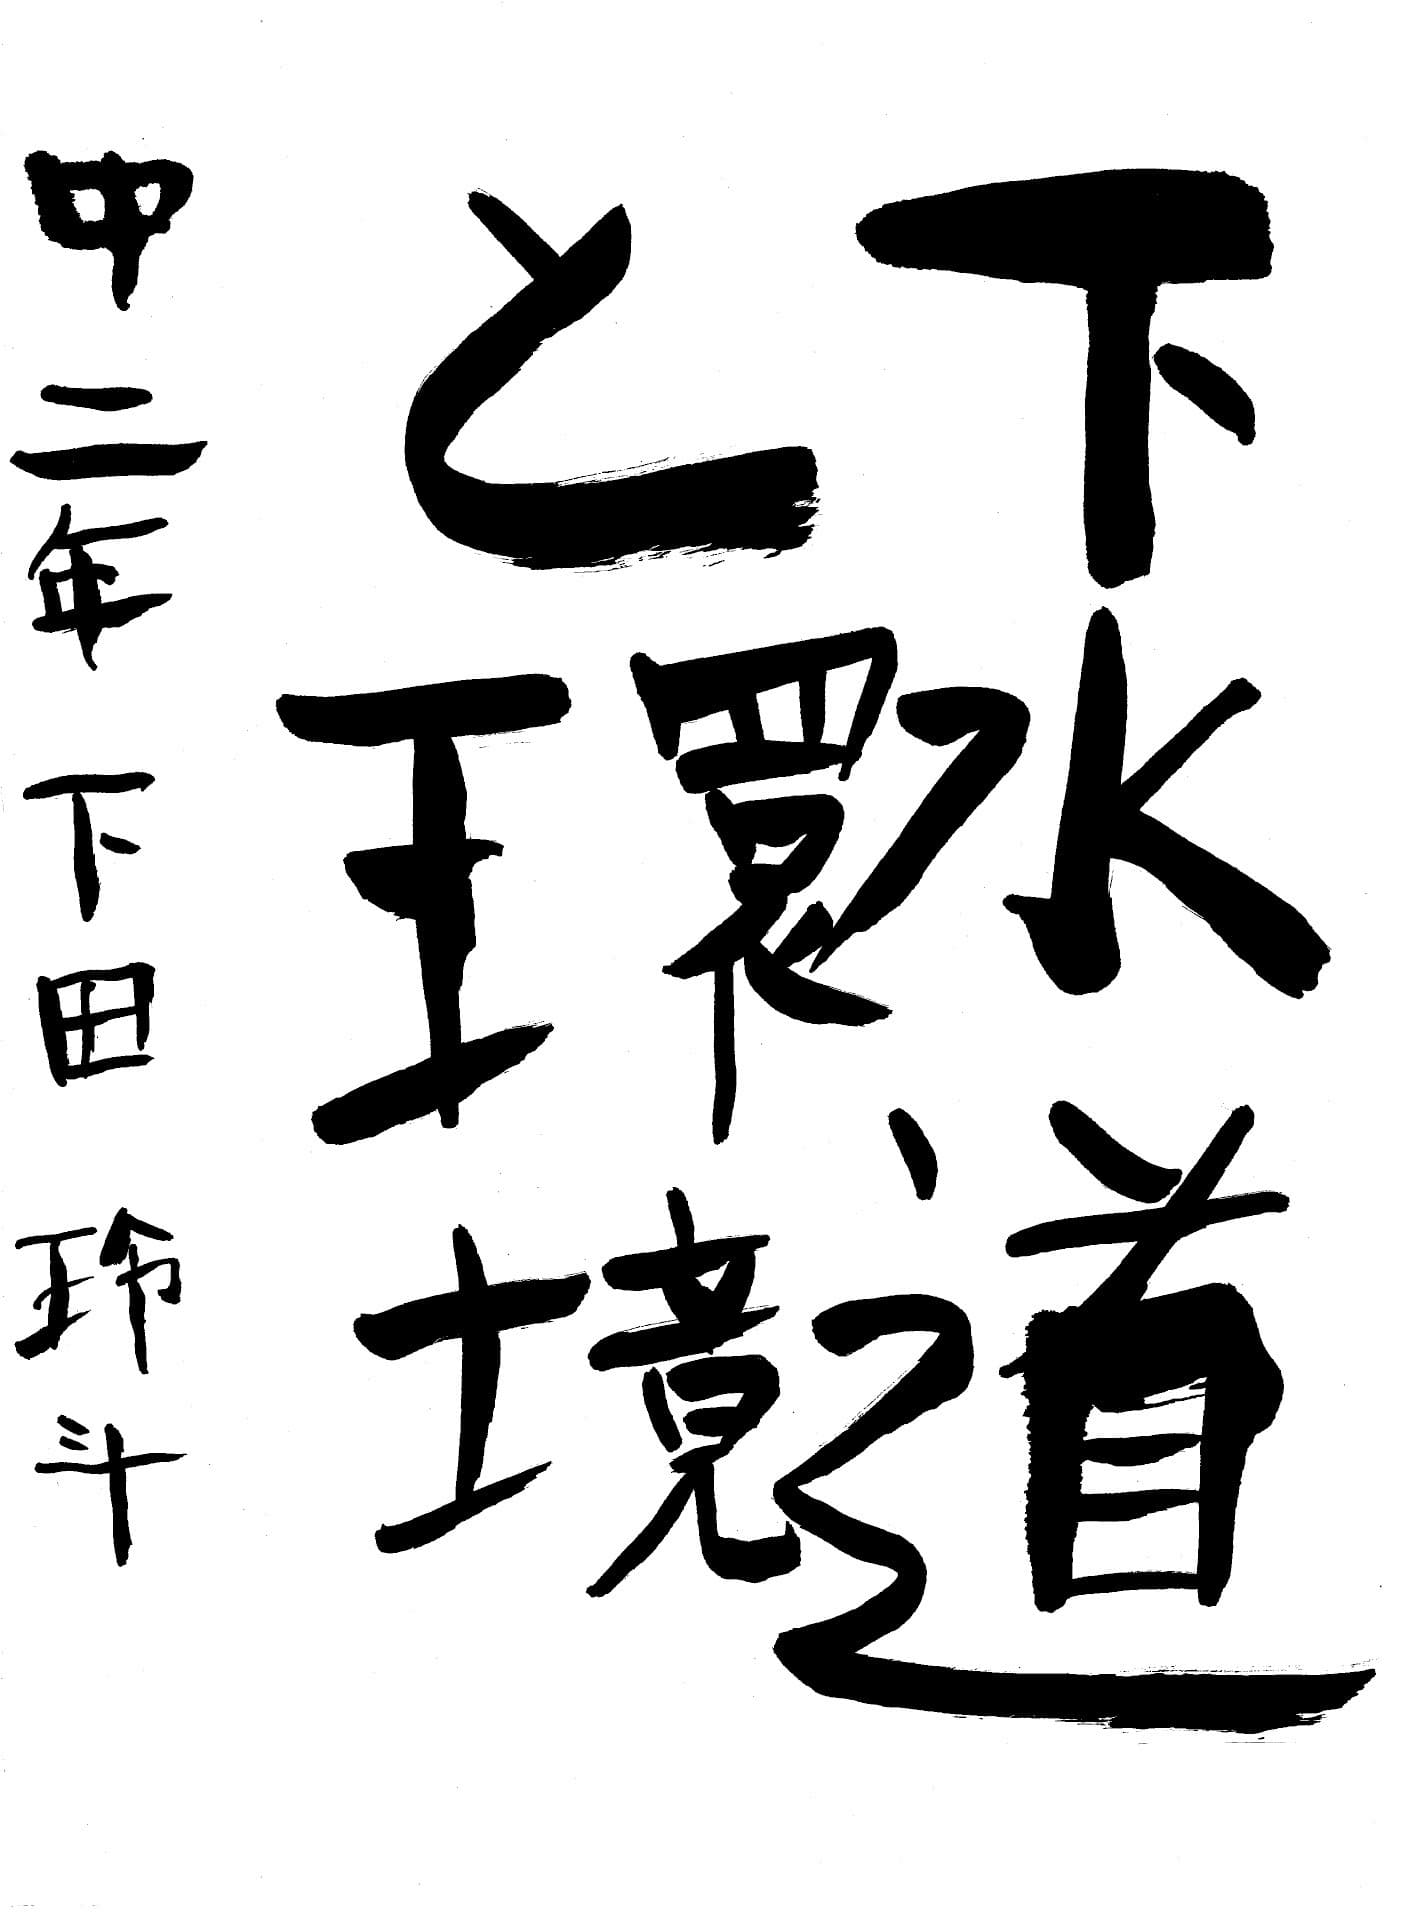 下水道
と環境
中二年 下田 玲斗